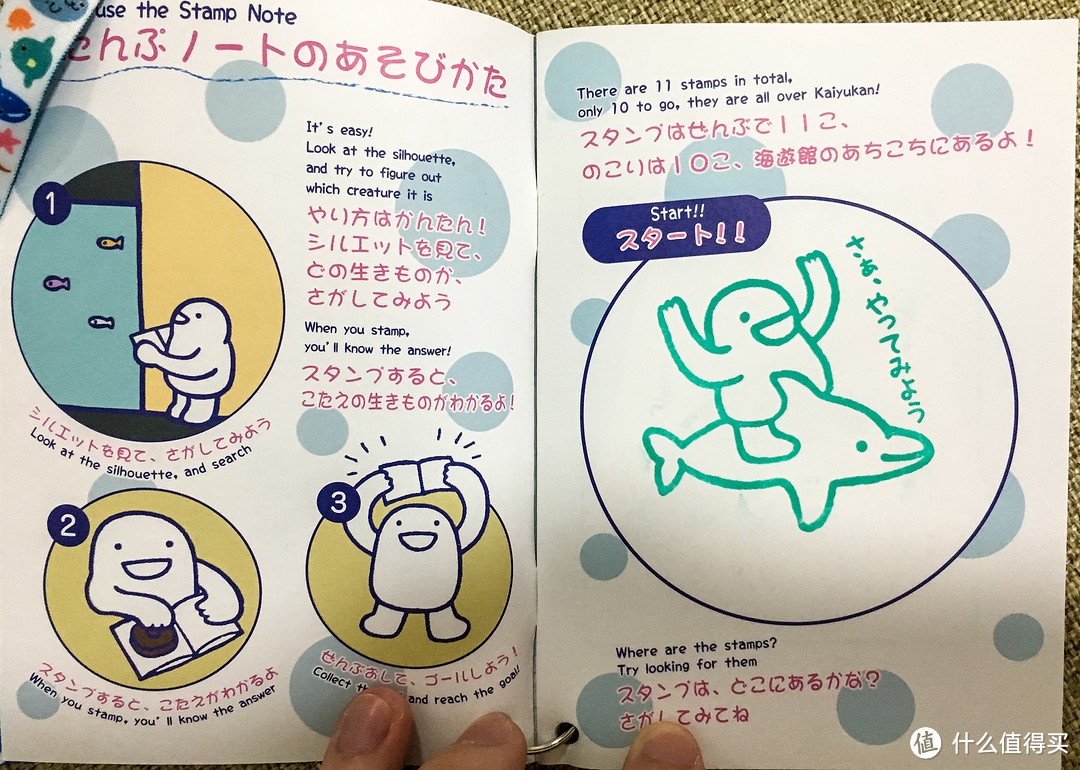 use the Stamp Note
たんぷノートのあそびかた
It's easy!
Look at the silhouette,
and try to figure out
which creature it is
やり方はかんたん!
シルエットを見て、
どの生きものか、
さがしてみよう
When you stamp,
you'll know the answer!
スタンプすると、
こたえの生きものがわかるよ!
1
シルエットを見て、さがしてみよう
Look at the silhouette, and search
2
スタンプすると、こたえがわかるよ
When you stamp, you'll know the answer
3
ぜんぶおして、ゴールしよう!
Collect and reach the goal!
There are 11 stamps in total,
only 10 to go, they are all over Kaiyukan!
スタンプはぜんぶで11こ、
のこりは10こ、海遊館のあちこちにあるよ!
Start!!
スタート!!
さぁ、やってみよう
Where are the stamps?
Try looking for them
スタンプは、どこにあるかな?
さがしてみてね
值 什么值得买